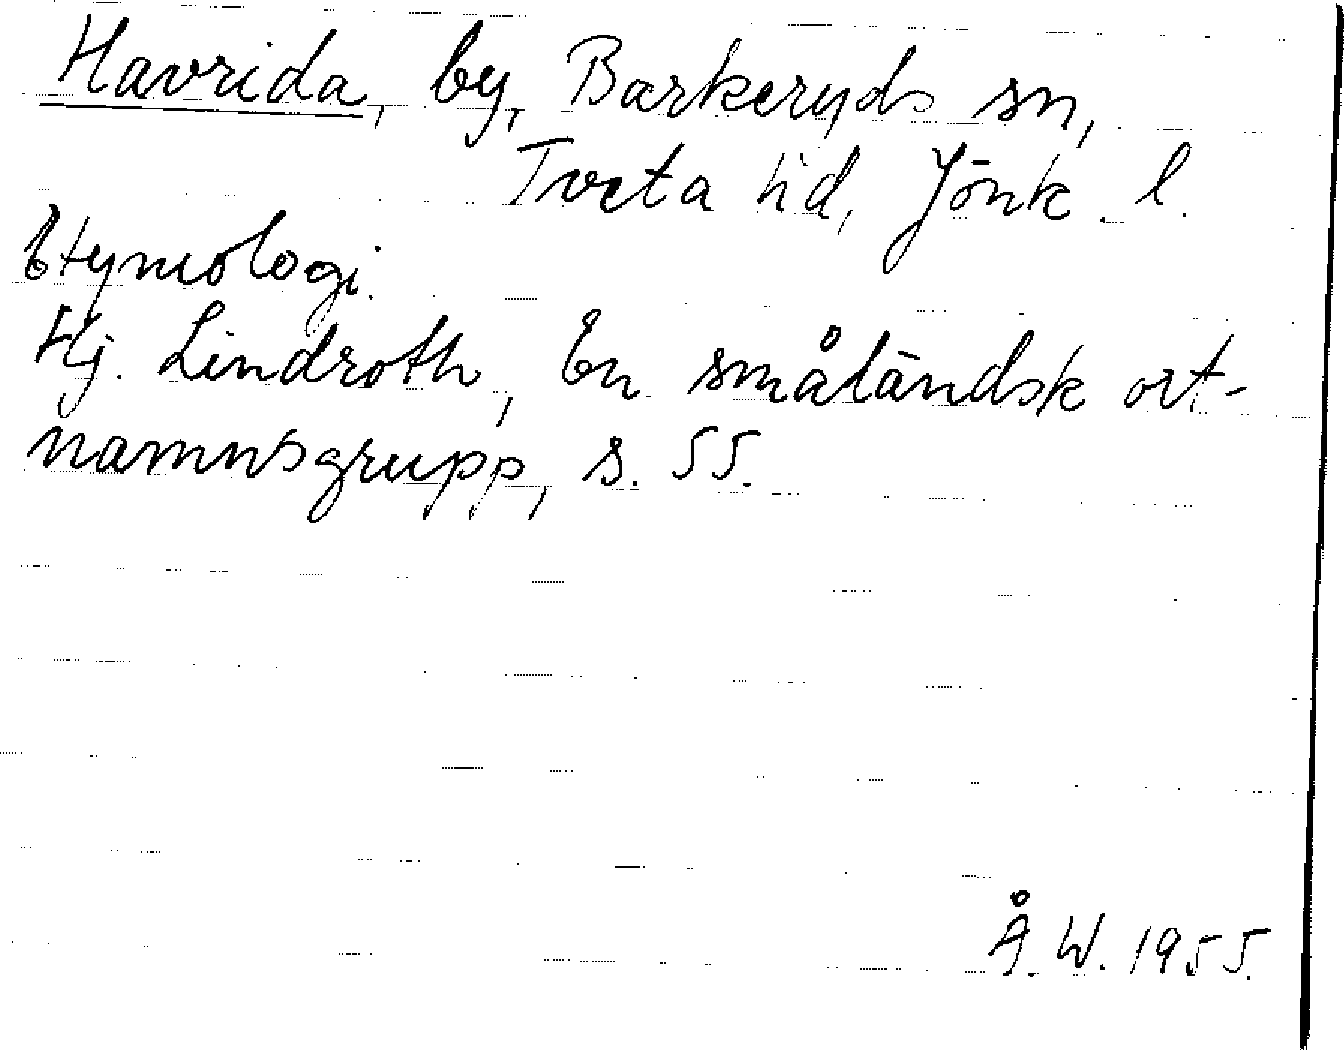 Havrida, by, Barkeryds sn,
Tveta hd, Jönk. l.
Etymologi.
Hj. Lindroth, En småländsk ort-
namnsgrupp, s. 55.
Å. W. 1955.